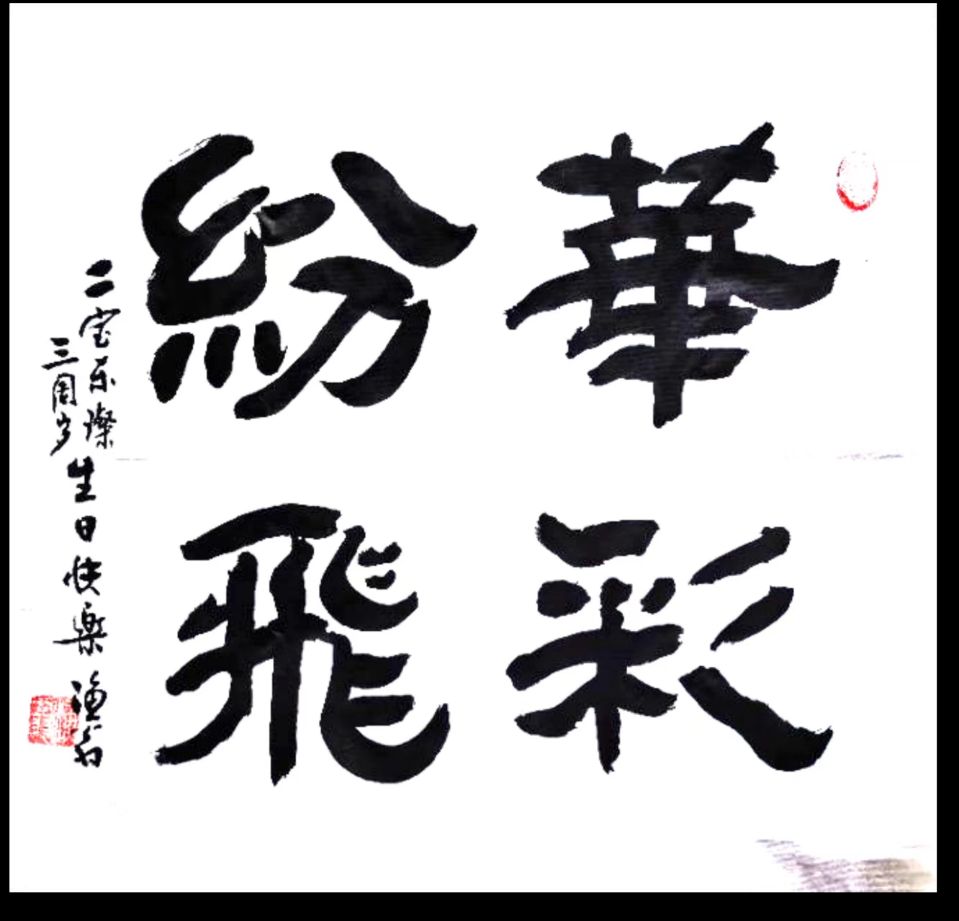 華彩
紛飛
二宝璨
三周岁
生日快樂 渔翁